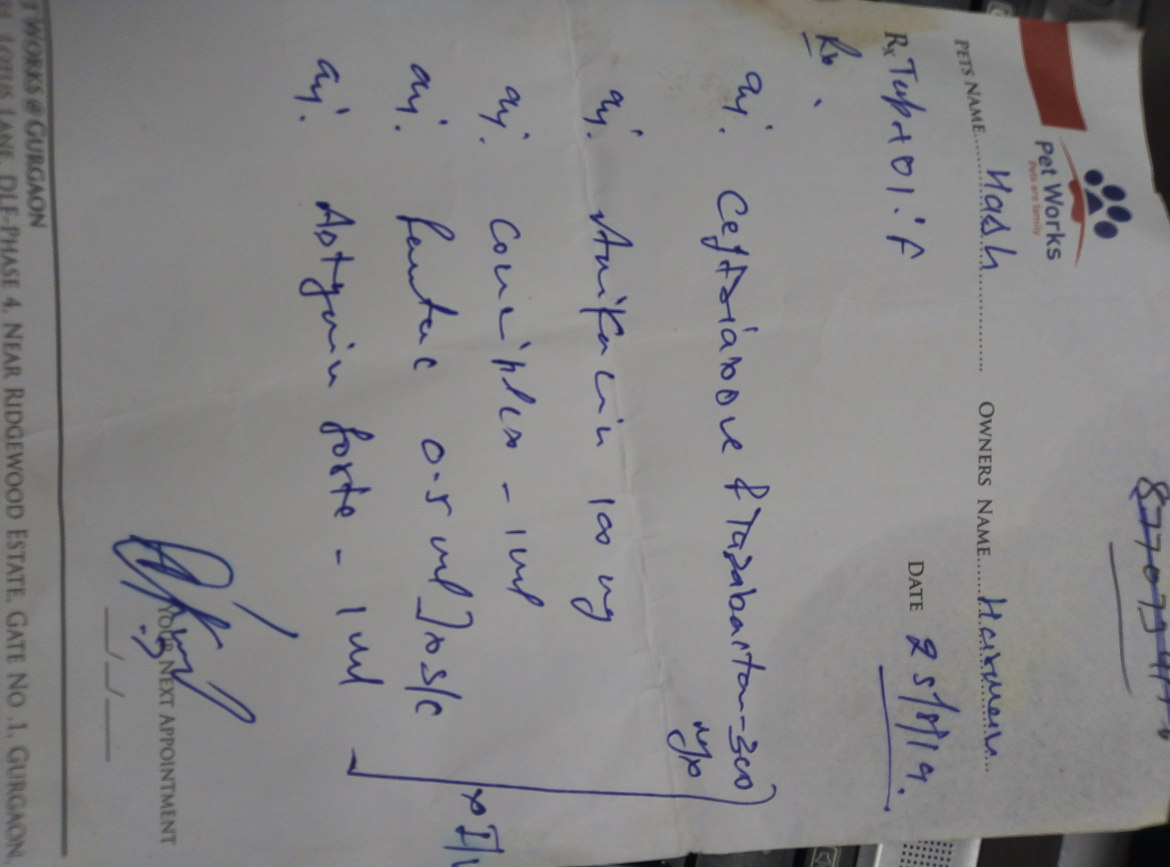 Pet Works
Pets are family
PETS NAME Hash OWNERS NAME Harmein
DATE 25/8/19.
Rx Temp → 101.1°F
Rx
inj. Ceftriaxone & Tazobactam - 300 mg
inj. Amikacin 100 mg
inj. Conciplex - 1 ml
inj. Rantac 0.5 ml] → S/C
inj. Astymin forte - 1 ml
YOUR NEXT APPOINTMENT
__/__/__
T WORKS @ GURGAON
LOTUS LANE, DLF-PHASE 4, NEAR RIDGEWOOD ESTATE, GATE NO .1, GURGAON